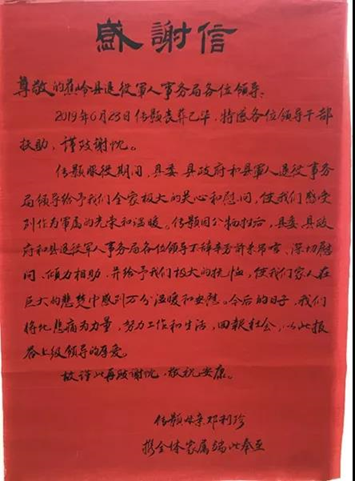 感謝信
尊敬的蕉岭县退役軍人事务局各位领导:
2019年6月23日传勛丧葬已毕,特感各位领导干部
扶助,謹致谢忱。
传勛服役期间,县委县政府和县軍人退役事务
局领导给予我们全家极大的关心和慰问,使我们感受
到作为軍属的光荣和温暖。传勛因公牺牲后,县委县政
府和县退役軍人事务局各位领导
问、倾力相助,并给予我们极大的抚恤,使我们家人在
巨大的悲愁中感到万分温暖和安慰。今后的日子,我们
将化悲痛为力量,努力工作和生活,回報社会,以此报
答上级领导的厚爱。
故谨此再致谢忱,敬祝安康。
传勛母亲邓利珍
携全体家属端此奉呈